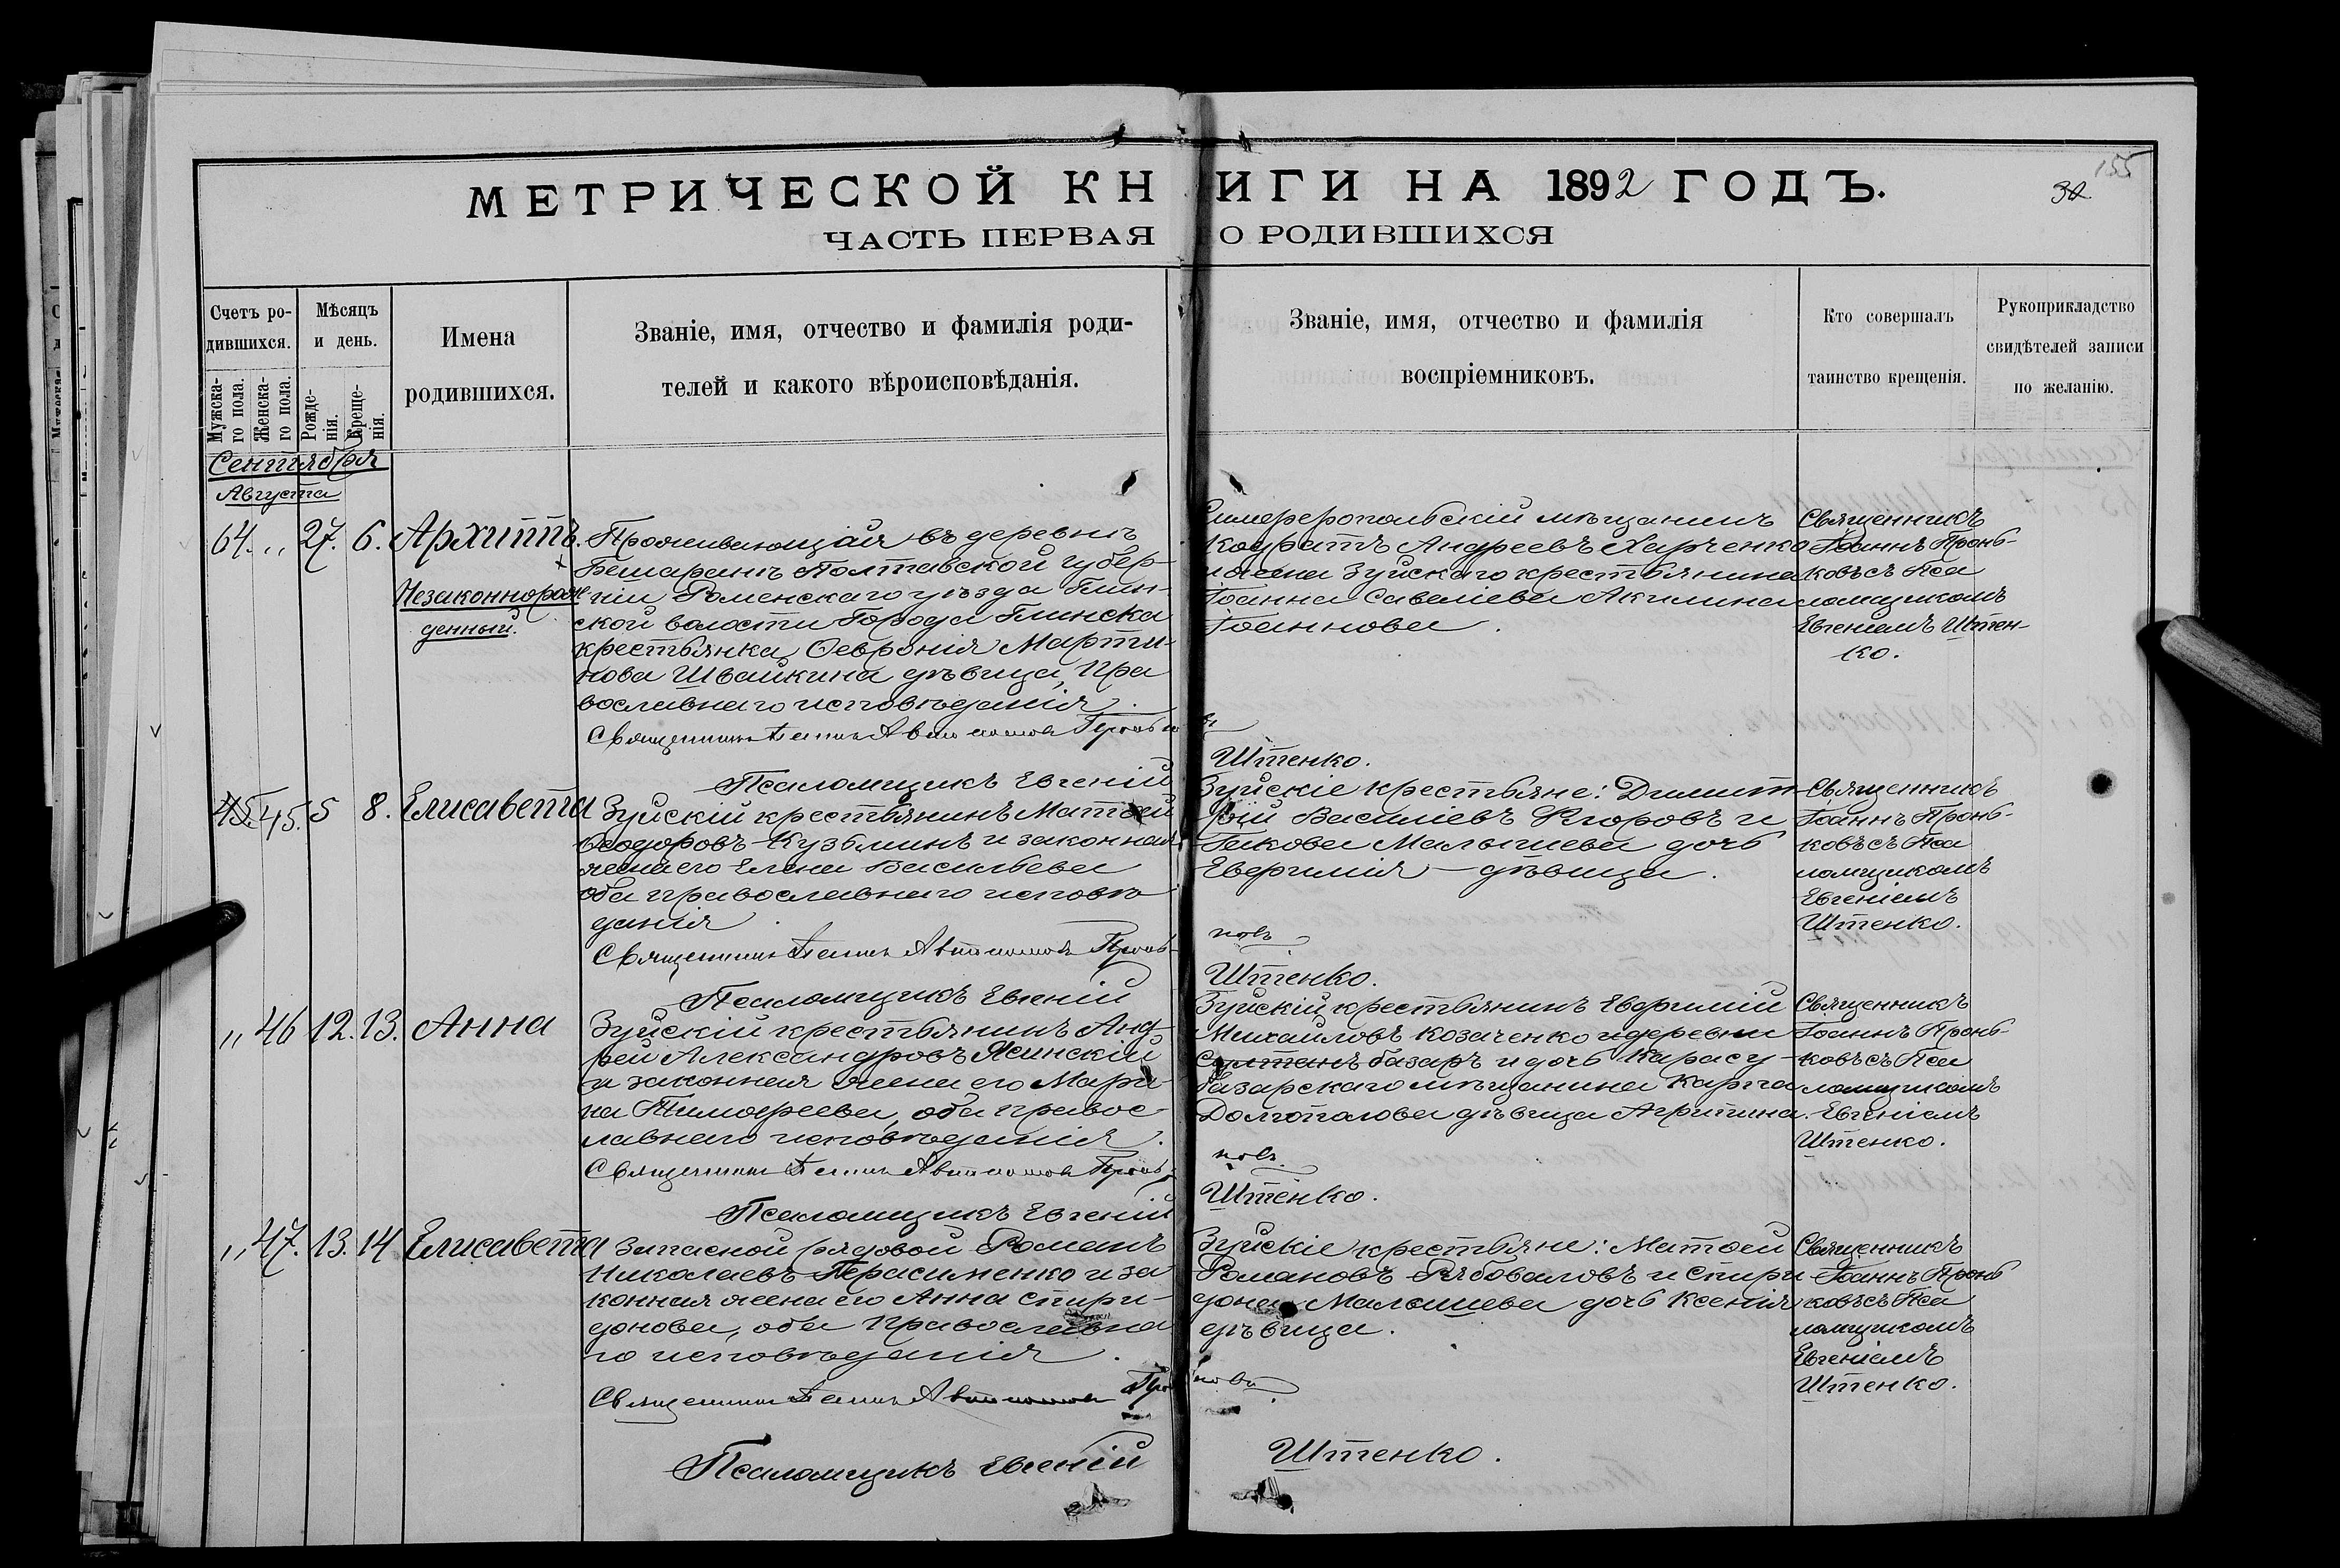 МЕТРИЧЕСКОЙ КНИГИ НА 1892 ГОДЪ.
155
32
ЧАСТЬ ПЕРВАЯ О РОДИВШИХСЯ
Счетъ ро-
дившихся.
Мужска-
го пола.
Женска-
го пола.
Мѣсяцъ
и день.
Рожде-
нія.
Креще-
нія.
Имена
родившихся.
Званіе, имя, отчество и фамилія роди-
телей и какого вѣроисповѣданія.
Званіе, имя, отчество и фамилія
воспріемниковъ.
Кто совершалъ
таинство крещенія.
Рукоприкладство
свидѣтелей записи
по желанію.
Сентября
Августа
64. „ 27. 6. Архиппъ.
Незаконнорож
денный.
Проживающая въ деревнѣ
Бешаранъ Полтавской губер-
ніи Роменскаго уѣзда Глин-
ской волости Города Глинска
крестьянка Ѳевронія Марти-
нова Швайкина дѣвица, Пра
вославнаго исповѣданія.
Священникъ Іоаннъ Автономовъ Проньковъ
Псаломщикъ Евгеній Штенко.
Симферопольскій мѣщанинъ
Кодратъ Андреевъ Харченко
и жена Зуйскаго крестьянина
Іоанна Савеліева Акилина
Іоаннова.
Священникъ
Іоаннъ Пронь-
ковъ съ Пса
ломщикомъ
Евгеніемъ Штен-
ко.
45. 45. 5 8. Елисавета
Зуйскій крестьянинъ Матѳей
Ѳеодоровъ Кузьминъ и законная
жена его Елена Васильева
оба православнаго исповѣ
данія.
Священникъ Іоаннъ Автономовъ Проньковъ
Псаломщикъ Евгеній Штенко.
Зуйскіе крестьяне: Димит-
рій Василіевъ Егоровъ и
Іакова Малышева дочь
Евфимія – дѣвица.
Священникъ
Іоаннъ Пронь-
ковъ съ Пса
ломщикомъ
Евгеніемъ
Штенко.
„ 46 12. 13. Анна
Зуйскій крестьянинъ Анд-
рей Александровъ Ясинскій
и законная жена его Мари-
на Тимофеева, оба правос-
лавнаго исповѣданія.
Священникъ Іоаннъ Автономовъ Проньковъ
Псаломщикъ Евгеній Штенко.
Зуйскій крестьянинъ Евфимій
Михайловъ Козаченко и деревни
Султанъ базаръ и дочь Карасу-
базарскаго мѣщанина Карпа
Долгополова дѣвица Агрипина.
Священникъ
Іоаннъ Пронь-
ковъ съ Пса
ломщикомъ
Евгеніемъ
Штенко.
„ 47. 13. 14 Елисавета
Запасной рядовой Романъ
Николаевъ Герасименко и за
конная жена его Анна Спири-
донова, оба Православна
го исповѣданія.
Священникъ Іоаннъ Автономовъ Проньковъ
Псаломщикъ Евгеній Штенко.
Зуйскіе крестьяне: Матѳей
Романовъ Рябоваловъ и Спири
дона Малышева дочь Ксенія
дѣвица.
Священникъ
Іоаннъ Пронь
ковъ съ Пса
ломщикомъ
Евгеніемъ
Штенко.